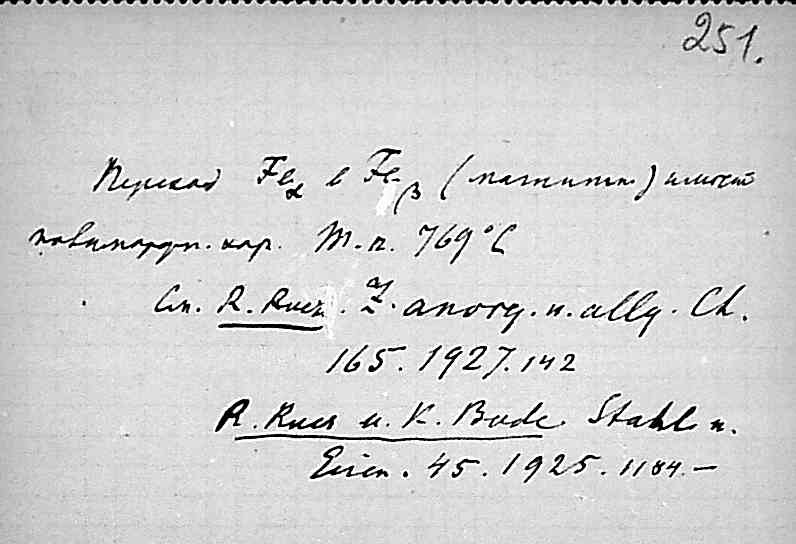 251.
Переход Feα в Feβ (магнитн.) имеет
пол. хар. Т.п. 769°C
См. R. Ruer. Z. anorg. u. allg. Ch.
165. 1927. 142
R. Ruer u. K. Bode. Stahl u.
Eisen. 45. 1925. 1184. —